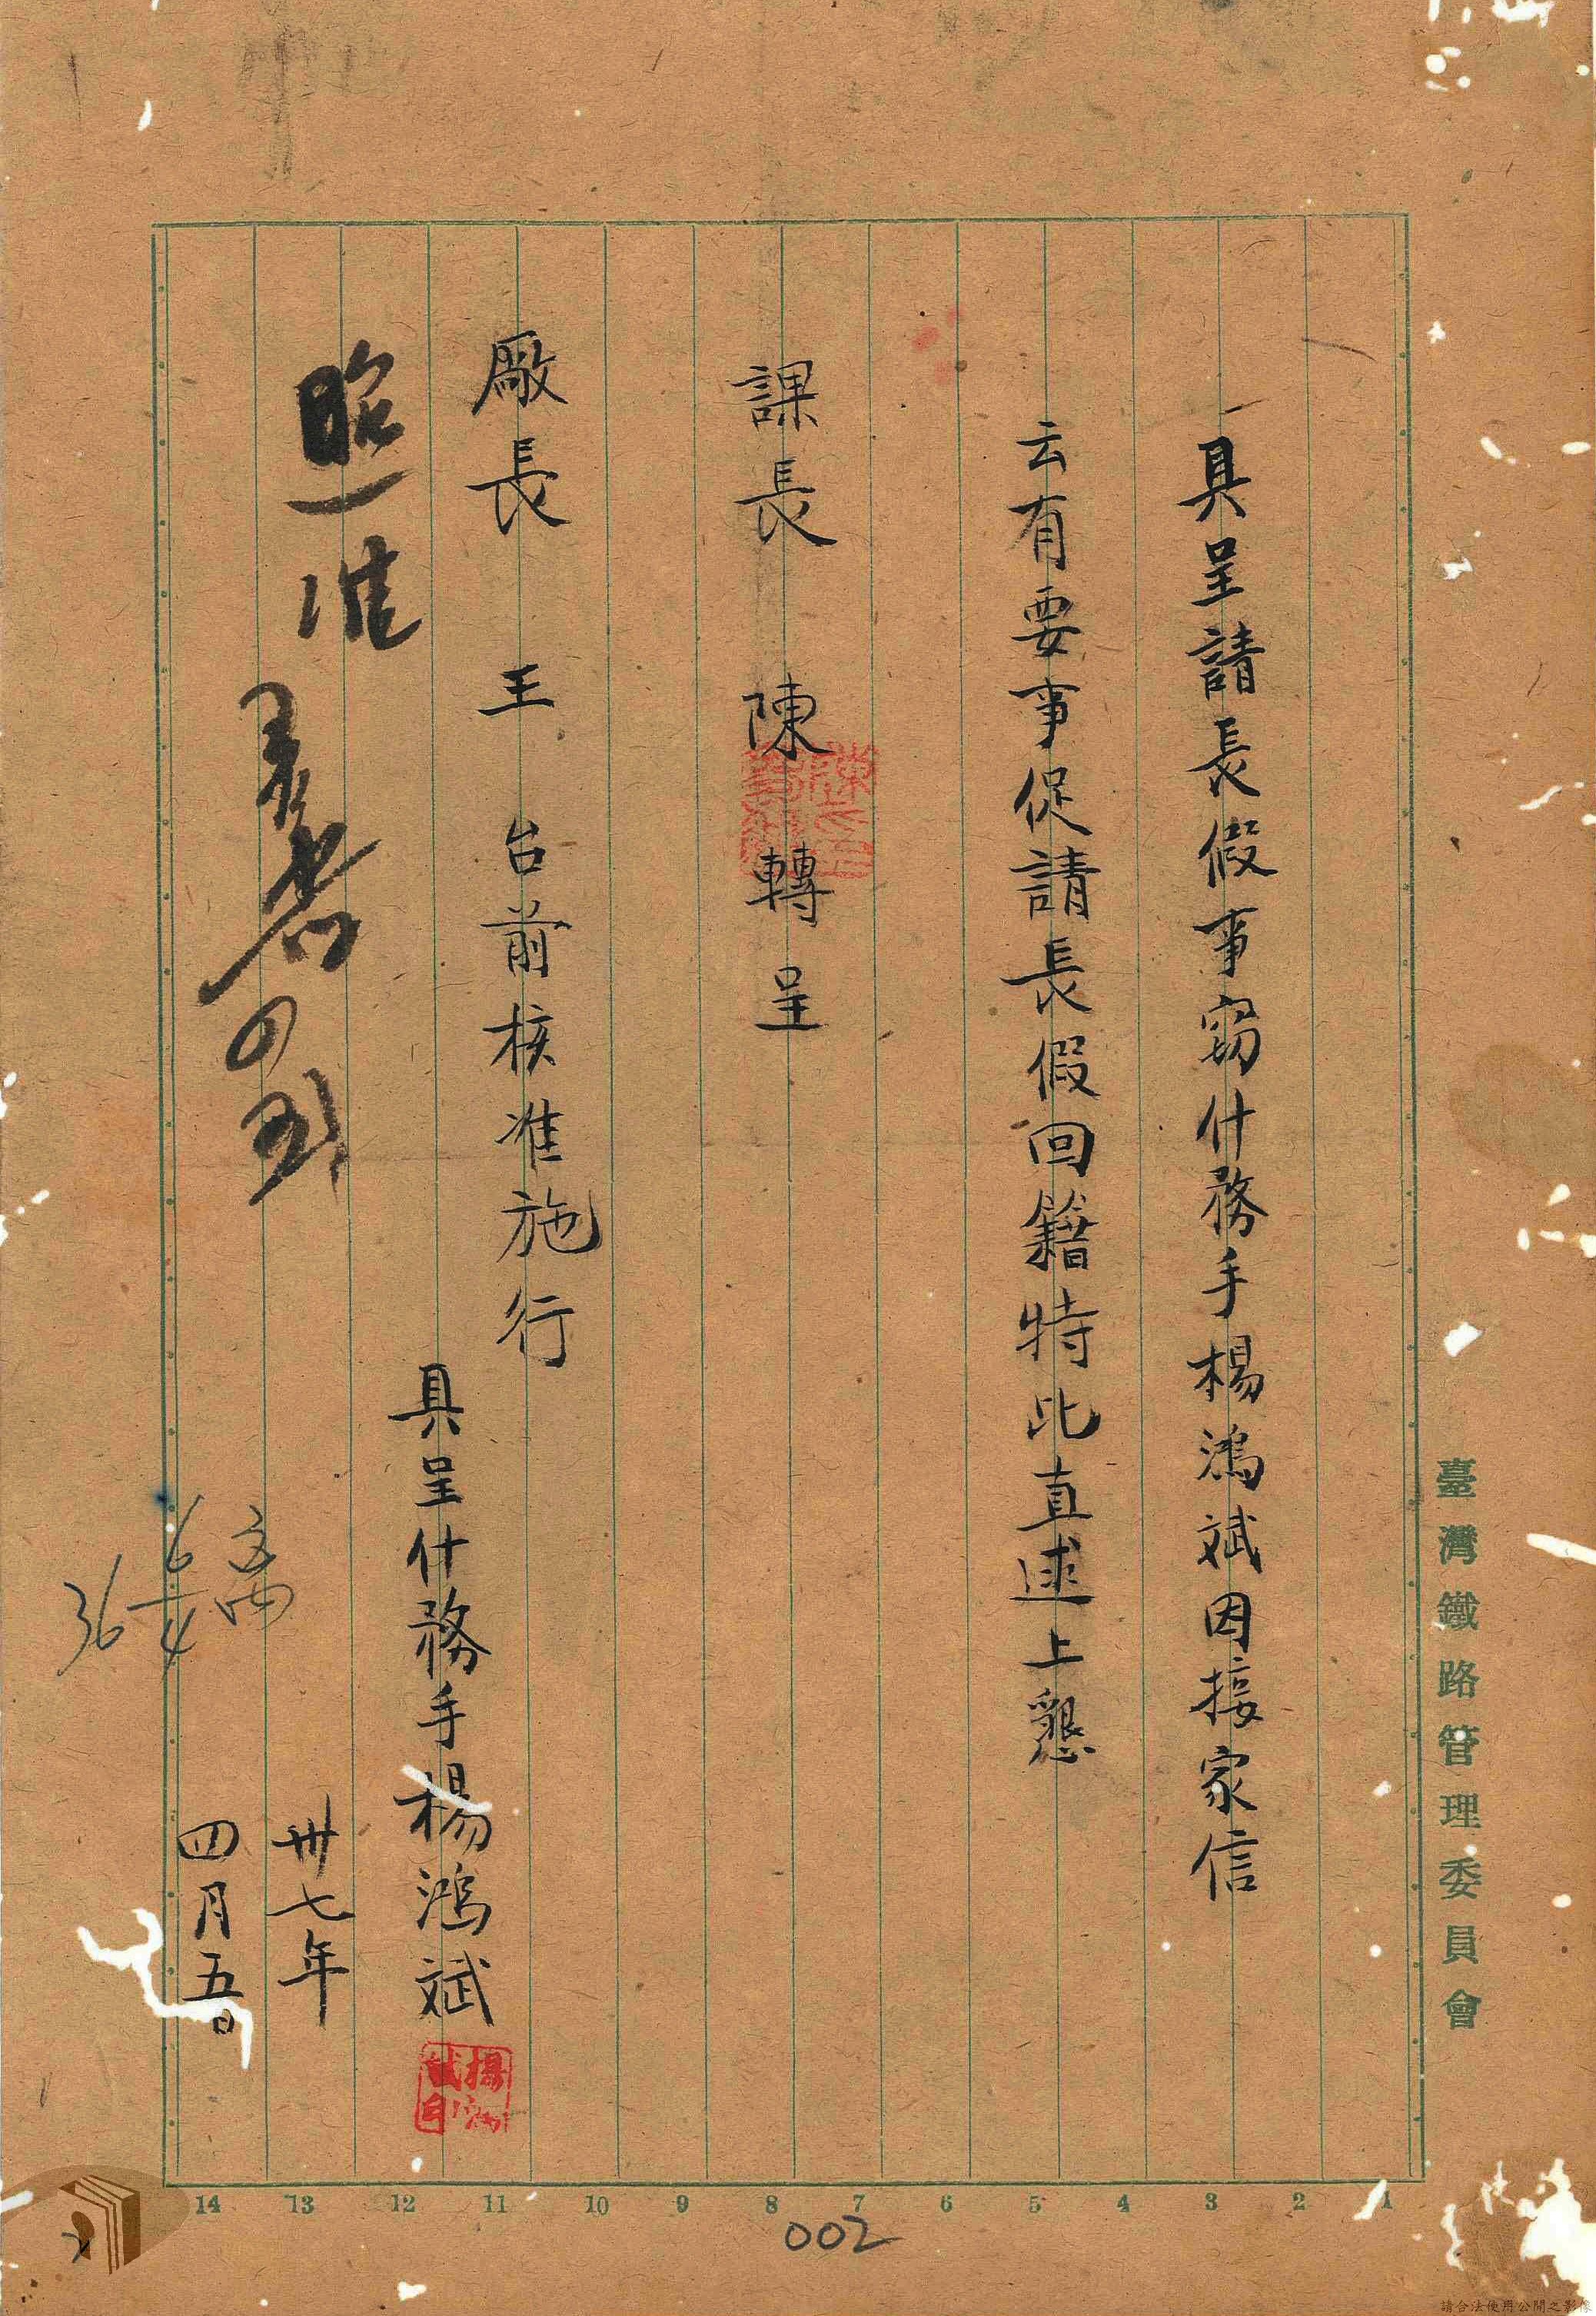 臺灣鐵路管理委員會
具呈請長假事竊什務手楊鴻斌因接家信
云有要事促請長假回籍特此直逑上懇
課長 陳 轉呈
廠長 王 台前核准施行
具呈什務手楊鴻斌
卅七年
四月五日
照准
1 2 3 4 5 6 7 8 9 10 11 12 13 14
002
請合法使用公開之影像